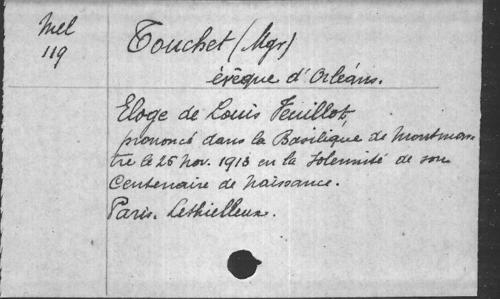 Mel
119
Touchet (Mgr)
évêque d'Orléans.
Eloge de Louis Veuillot,
prononcé dans la Basilique de Montmar-
tre le 25 Nov. 1913 en la Solennité de son
Centenaire de Naissance.
Paris. Lethielleux.